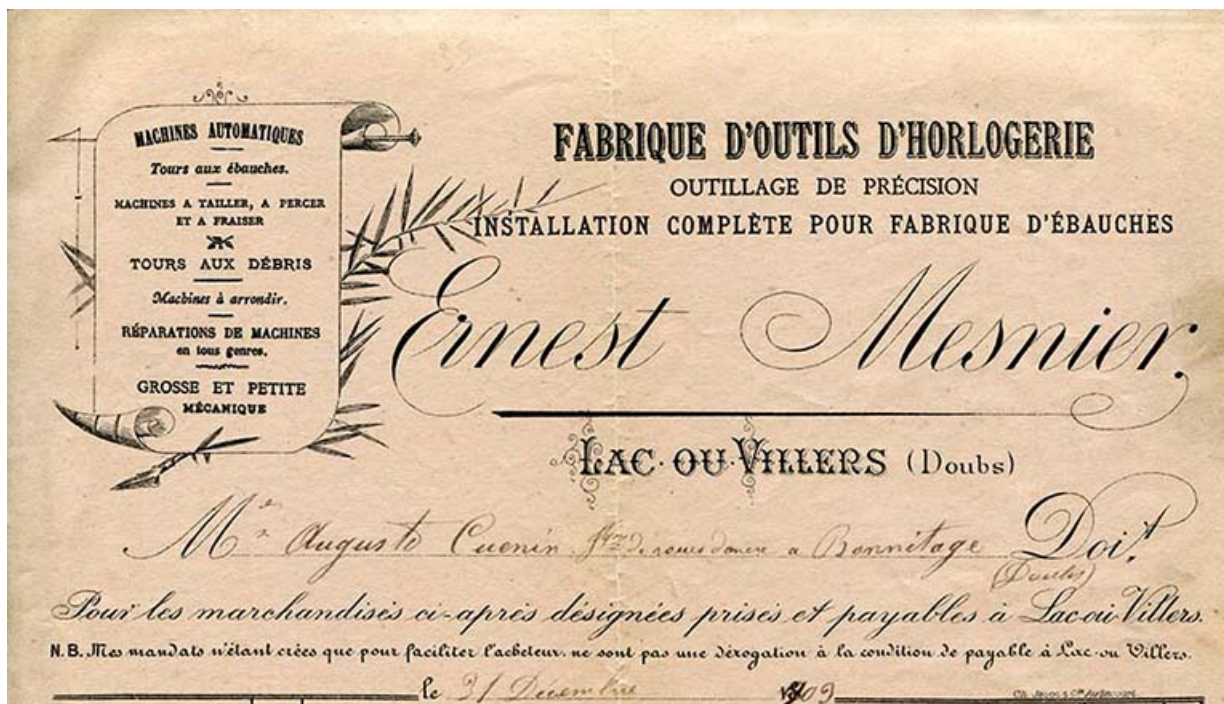 MACHINES AUTOMATIQUES
Tours aux ébauches.
MACHINES A TAILLER, A PERCER
ET A FRAISER
TOURS AUX DÉBRIS
Machines à arrondir.
RÉPARATIONS DE MACHINES
en tous genres.
GROSSE ET PETITE
MÉCANIQUE
FABRIQUE D'OUTILS D'HORLOGERIE
OUTILLAGE DE PRÉCISION
INSTALLATION COMPLÈTE POUR FABRIQUE D'ÉBAUCHES
Ernest Mesnier,
LAC·OU·VILLERS (Doubs)
Mr Auguste Cuenin a Bonnétage Doit
(Doubs)
Pour les marchandises ci-après désignées prises et payables à Lac-où-Villers.
N.B. Mes mandats n'étant crées que pour faciliter l'acheteur, ne sont pas une dérogation à la condition de payable à Lac-ou Villers.
le 31 Décembre 1909